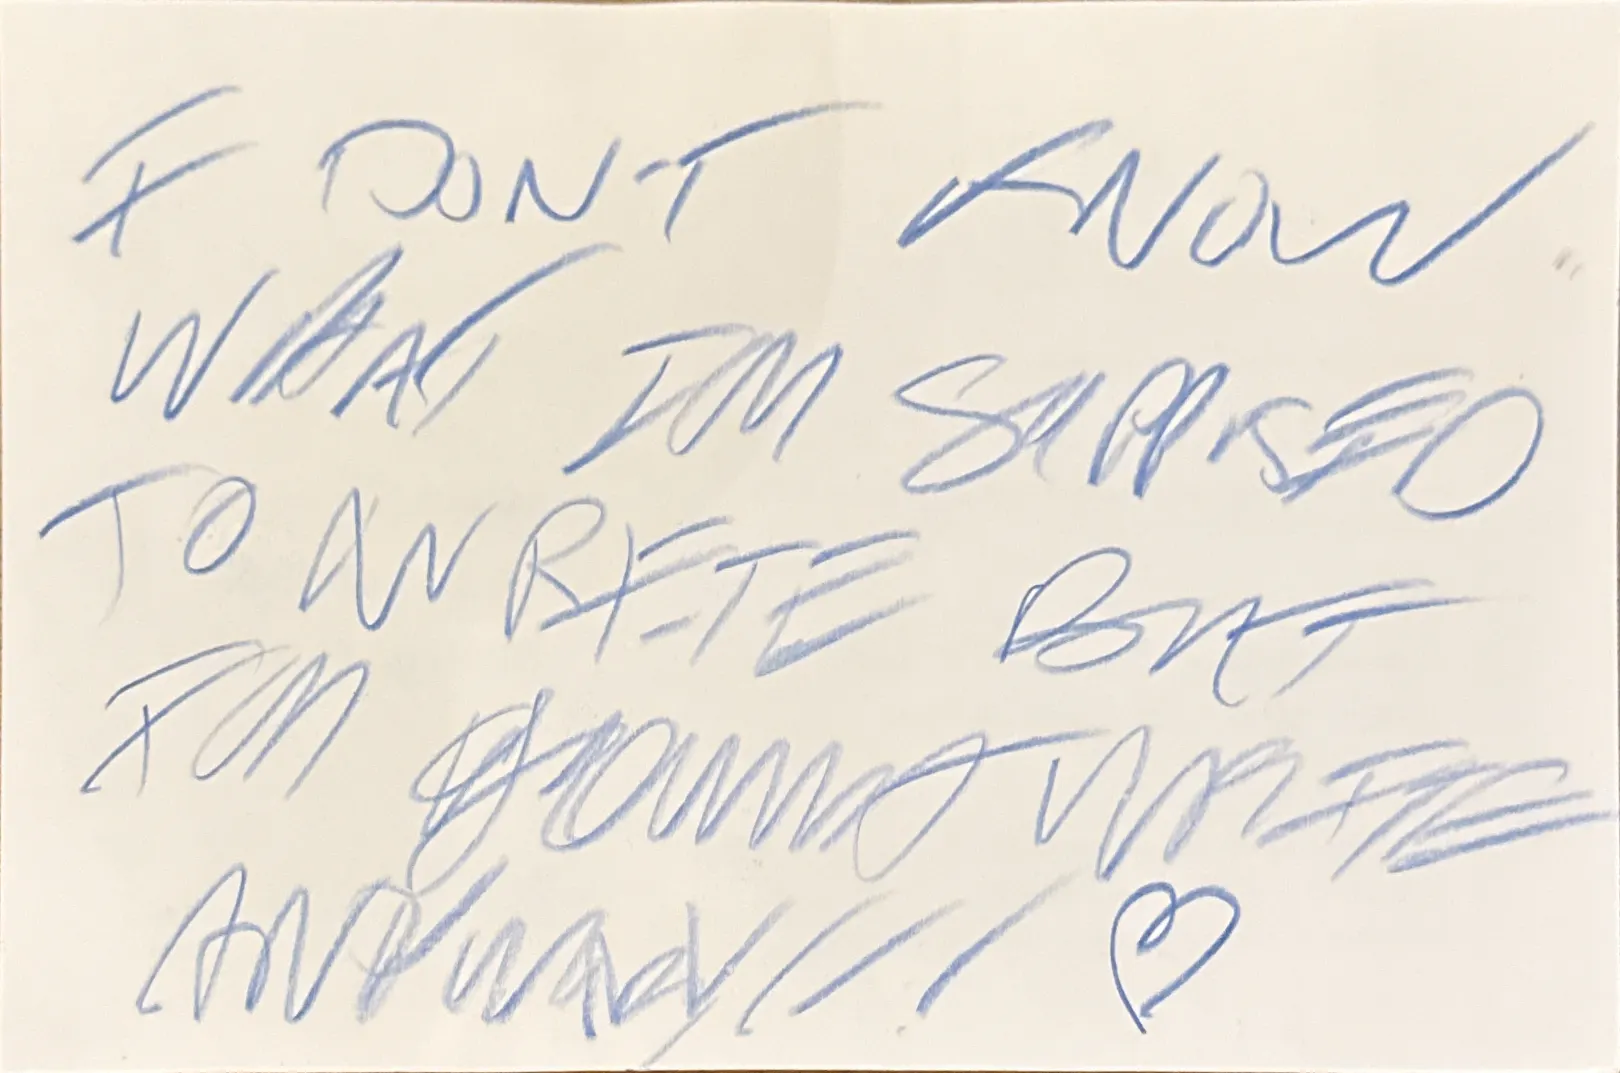 I DON'T KNOW
WHAT IM SUPPOSED
TO WRITE BUT
IM GOING WRITE
ANYWAY!! ♡